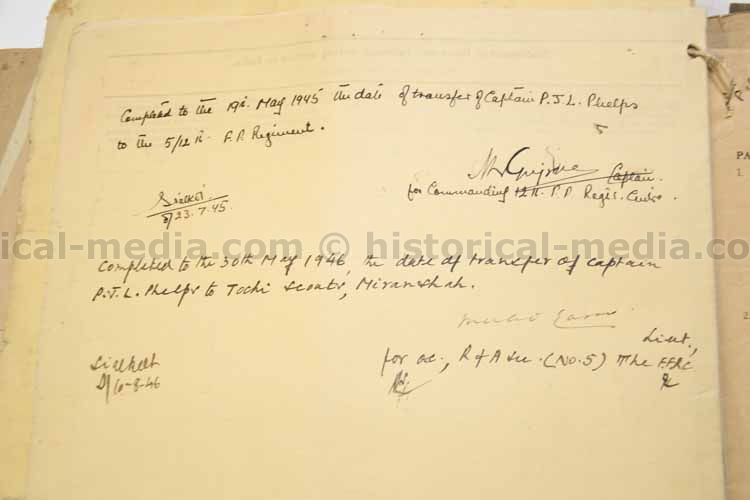 Completed to the 19th May 1945 the date of transfer of Captain P.J.L. Phelps
to the 5/12th F.F. Regiment.
Captain.
for Commanding 12th F.F. Regtl. Centre.
Sialkot.
D/23.7.45.
historical-media.com © historical-media.com
Completed to the 30th May 1946, the date of transfer of captain
P.J.L. Phelps to Tochi Scouts, Miranshah.
Lieut,
for oc., R & A Sec. (No. 5) The FFRC
Sialkot
D/10-8-46
PA
1.
2.